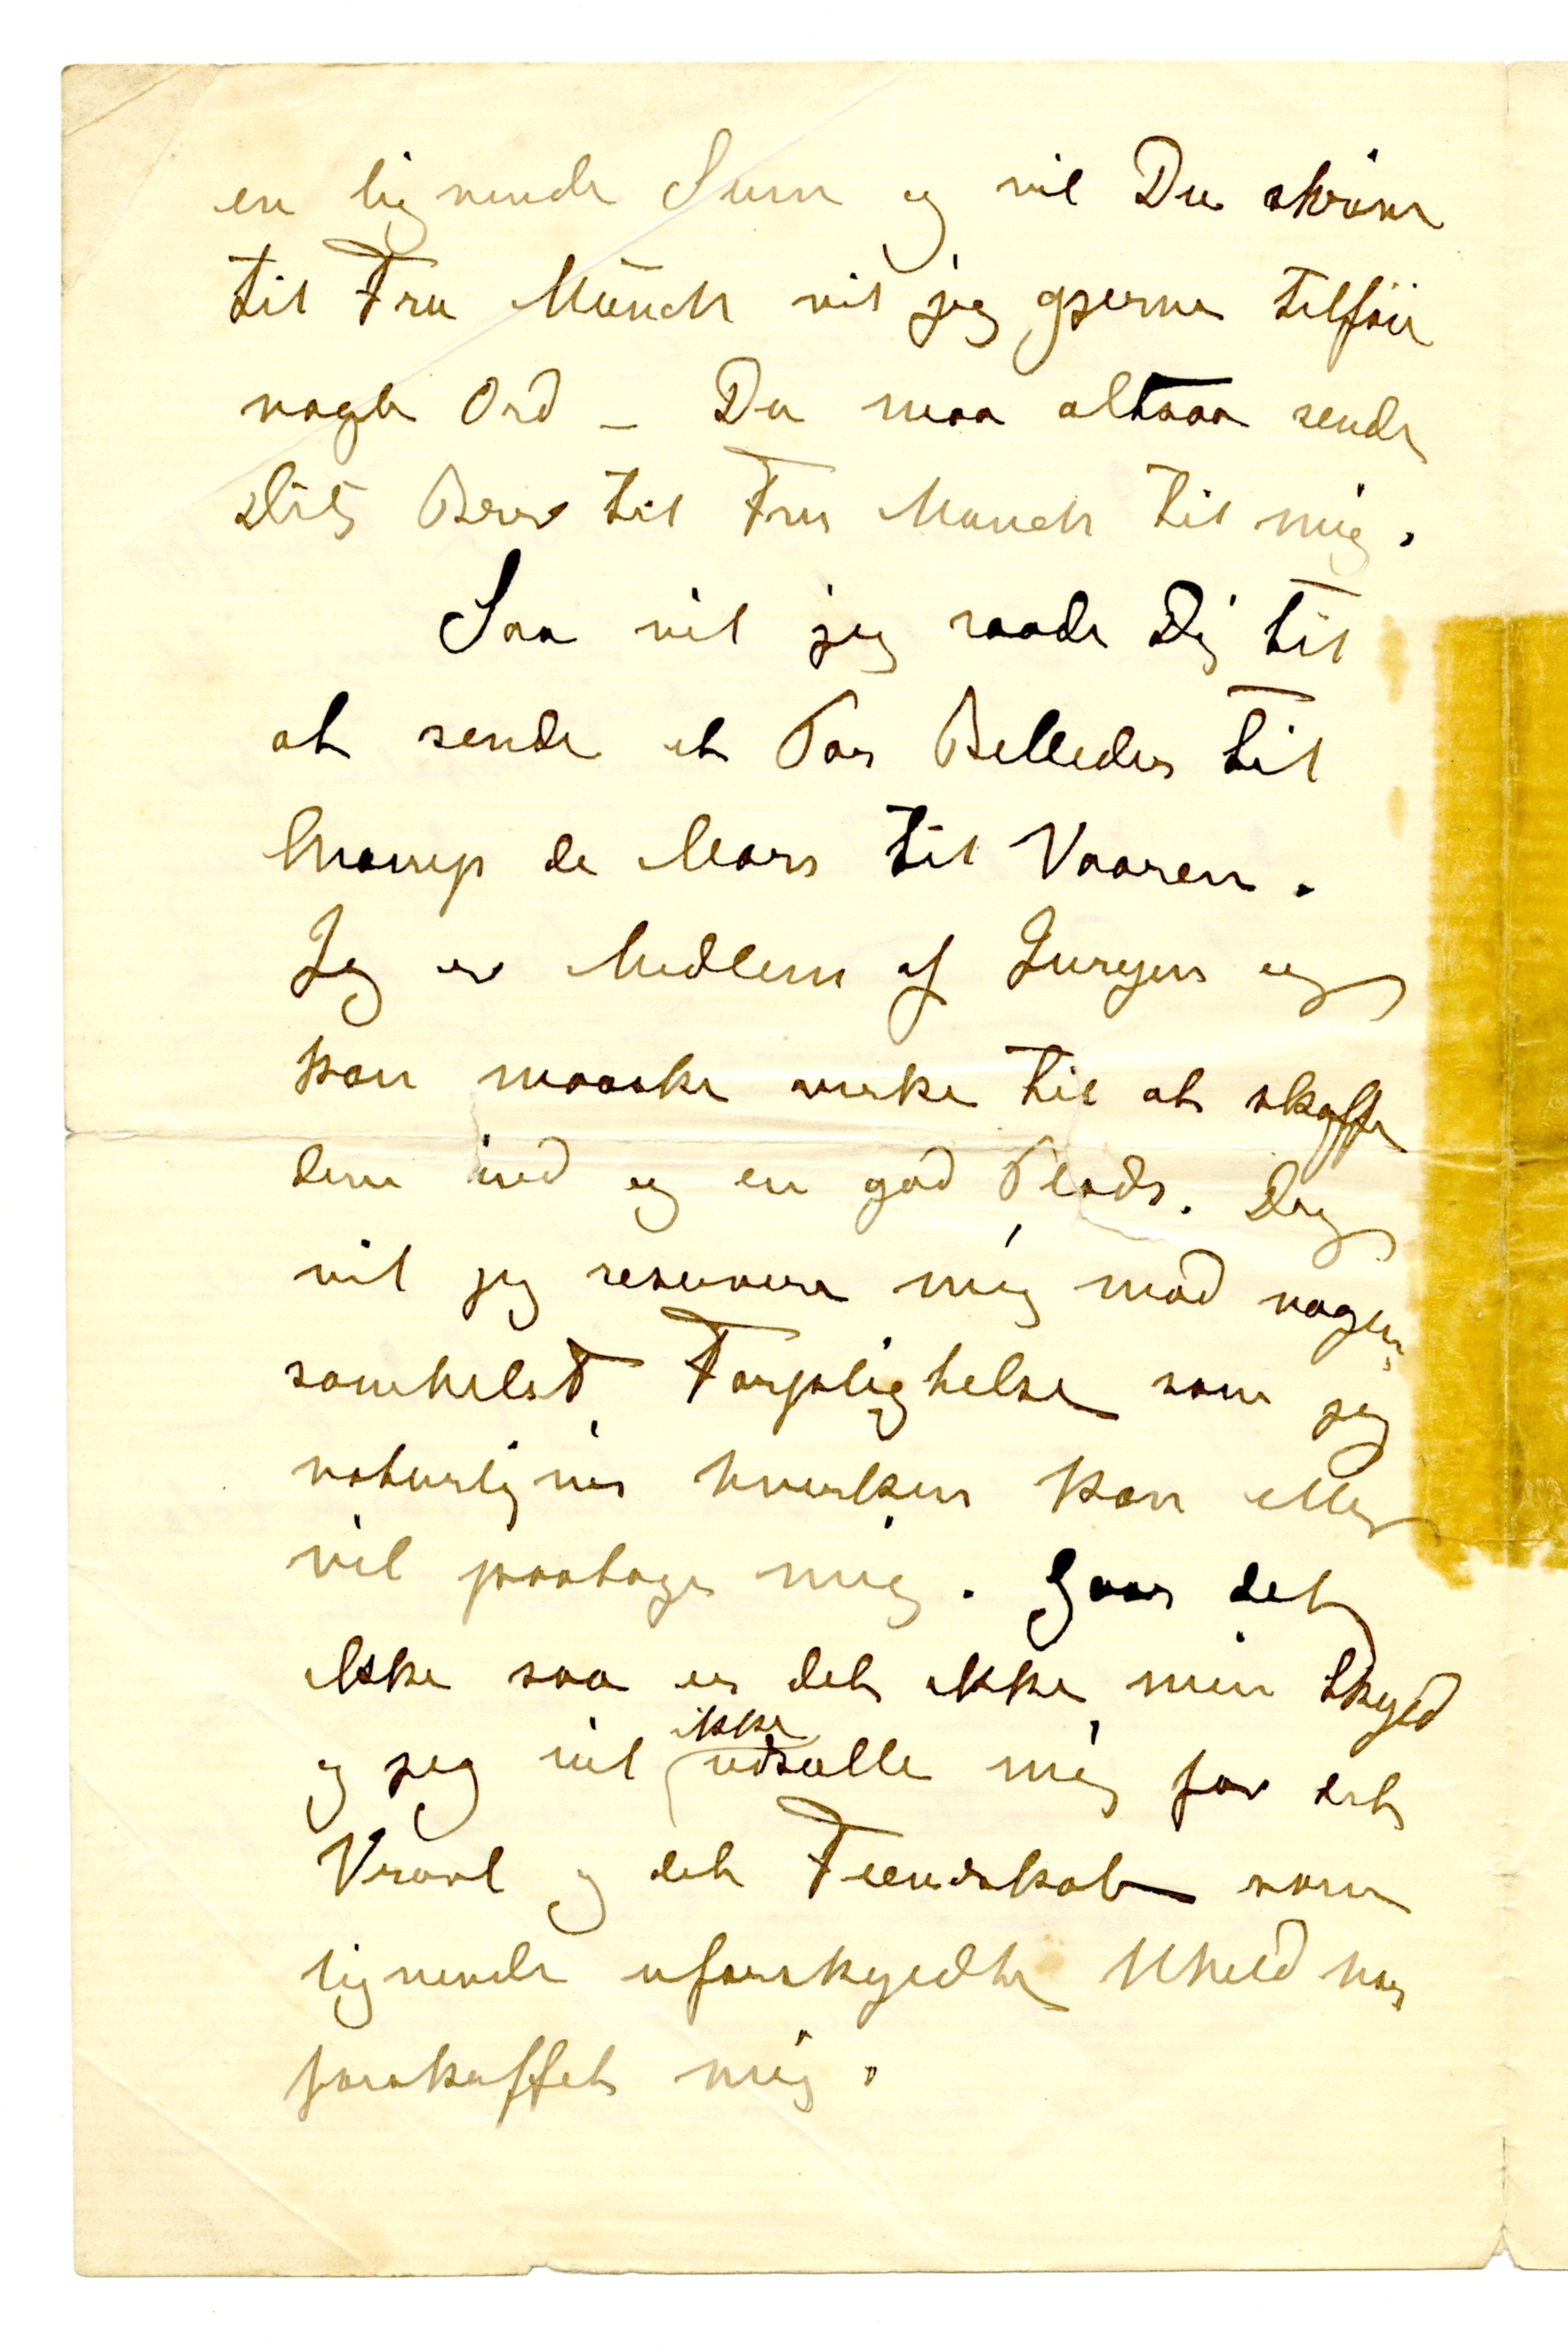 en lignende Sum og vil Du skrive
til Fru Münch vil jeg gjerne tilföie
nogle Ord – Du maa altsaa sende
Dit Brev til Fru Munch til mig.
Saa vil jeg raade Dig til
at sende et Par Billeder til
Champ de Mars til Vaaren.
Jeg er Medlem af Juryen og
kan maaske virke til at skaffe
dem ind og en god Plads. Dog
vil jeg reservere mig mod nogen
somhelst Forpligtelse som jeg
naturligvis hverken kan eller
vil paatage mig. Gaar det
ikke saa er det ikke min Skyld
og jeg vil ikke udsætte mig for det
Vravl og det Fiendskab som
lignende uforskyldte Uheld har
forskaffet mig.